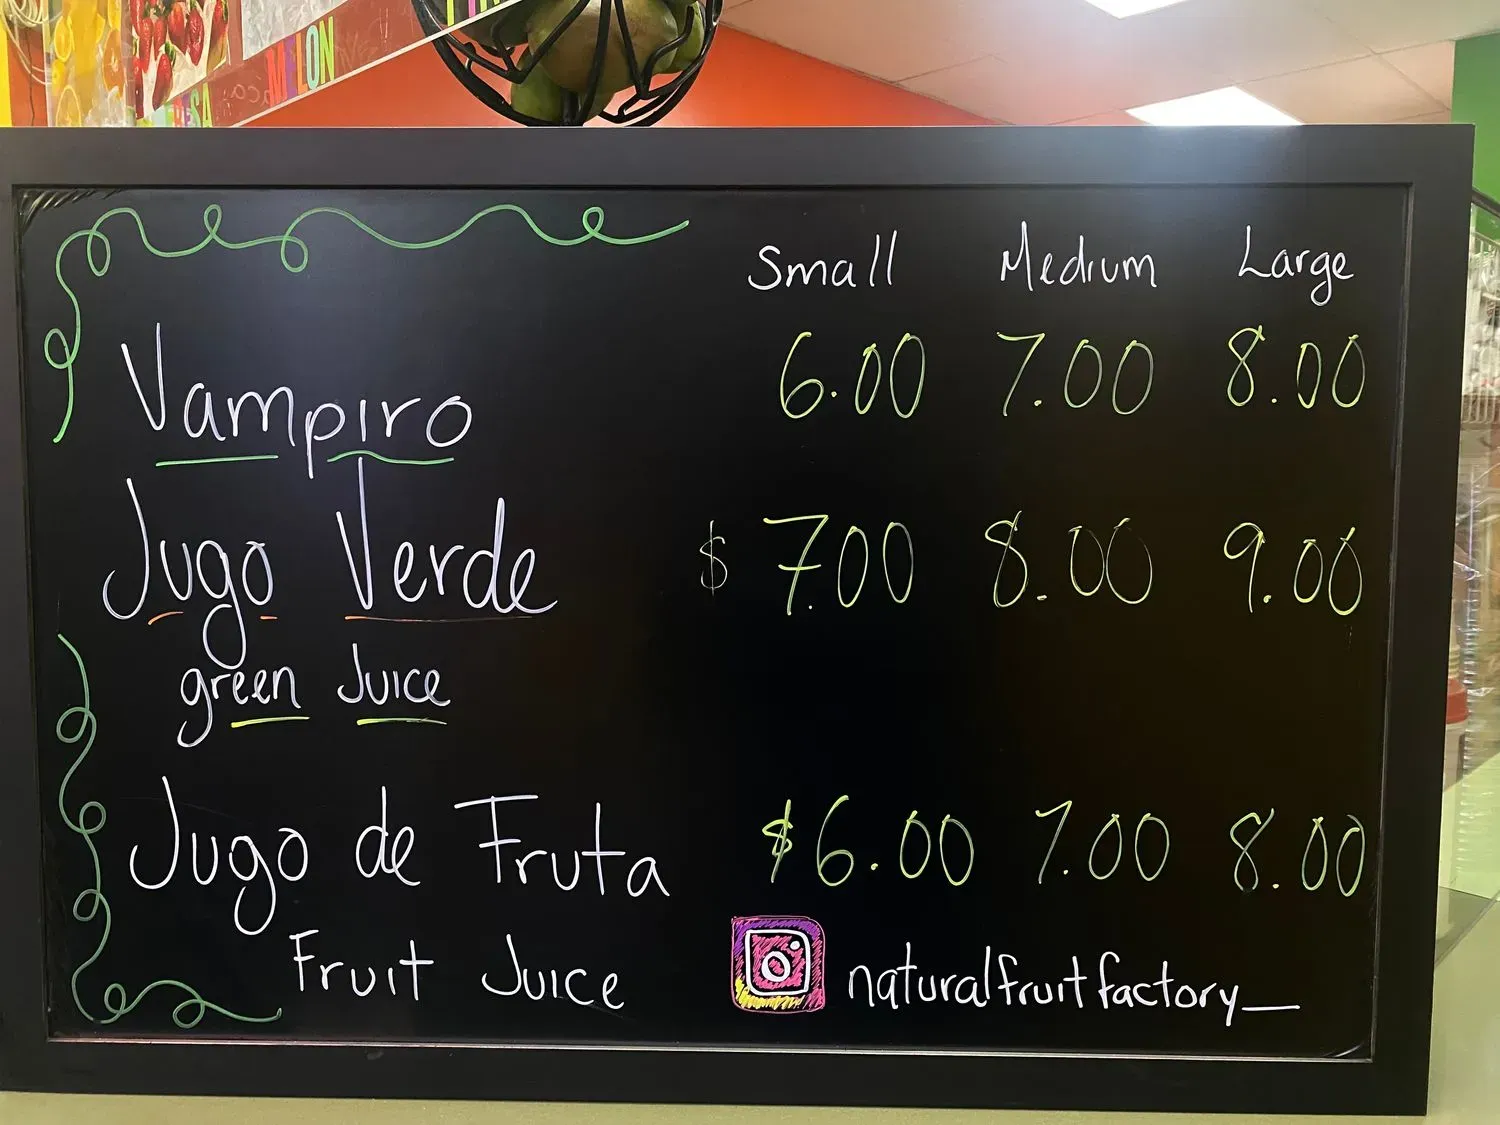 MELON
RESA
Small Medium Large
Vampiro 6.00 7.00 8.00
Jugo Verde $ 7.00 8.00 9.00
green Juice
Jugo de Fruta $6.00 7.00 8.00
Fruit Juice
naturalfruitfactory_